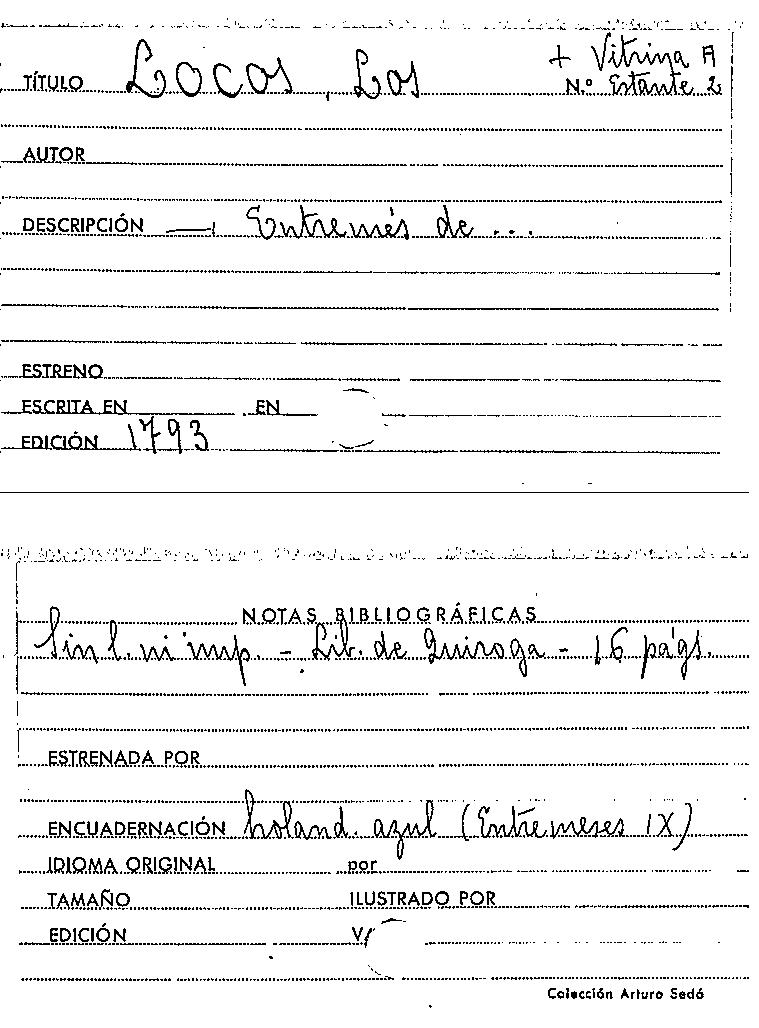 TÍTULO Locos, Los + Vitrina A
N.º Estante 2
AUTOR
DESCRIPCIÓN — Entremés de ...
ESTRENO
ESCRITA EN EN
EDICIÓN 1793
NOTAS BIBLIOGRÁFICAS
Sin l. ni imp. - Lib. de Quiroga - 16 págs.
ESTRENADA POR
ENCUADERNACIÓN holand. azul (Entremeses IX)
IDIOMA ORIGINAL por
TAMAÑO ILUSTRADO POR
EDICIÓN V/
Colección Arturo Sedó